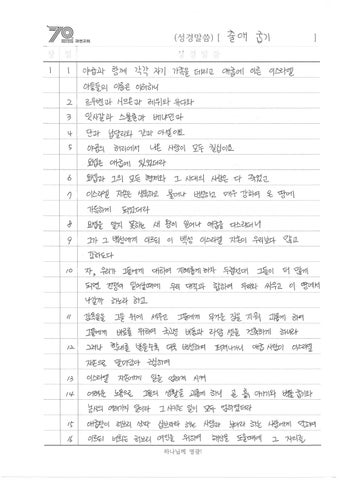 70
(성경말씀) [ 출애굽기 ]
장 절 성경말씀
1 1 야곱과 함께 각각 자기 가족을 데리고 애굽에 이른 이스라엘
아들들의 이름은 이러하니
2 르우벤과 시므온과 레위와 유다와
3 잇사갈과 스불론과 베냐민과
4 단과 납달리와 갓과 아셀이요
5 야곱의 허리에서 나온 사람이 모두 칠십이요
요셉은 애굽에 있었더라
6 요셉과 그의 모든 형제와 그 시대의 사람은 다 죽었고
7 이스라엘 자손은 생육하고 불어나 번성하고 매우 강하여 온 땅에
가득하게 되었더라
8 요셉을 알지 못하는 새 왕이 일어나 애굽을 다스리더니
9 그가 그 백성에게 이르되 이 백성 이스라엘 자손이 우리보다 많고
강하도다
10 자, 우리가 그들에게 대하여 지혜롭게 하자 두렵건대 그들이 더 많게
되면 전쟁이 일어날 때에 우리 대적과 합하여 우리와 싸우고 이 땅에서
나갈까 하노라 하고
11 감독들을 그들 위에 세우고 그들에게 무거운 짐을 지워 괴롭게 하여
그들에게 바로를 위하여 국고성 비돔과 라암셋을 건축하게 하니라
12 그러나 학대를 받을수록 더욱 번성하여 퍼져나가니 애굽 사람이 이스라엘
자손으로 말미암아 근심하여
13 이스라엘 자손에게 일을 엄하게 시켜
14 어려운 노동으로 그들의 생활을 괴롭게 하니 곧 흙 이기기와 벽돌 굽기와
농사의 여러가지 일이라 그 시키는 일이 모두 엄하였더라
15 애굽 왕이 히브리 산파 십브라라 하는 사람과 부아라 하는 사람에게 말하여
16 이르되 너희는 히브리 여인을 위하여 해산을 도울 때에 그 자리를
하나님께 영광!